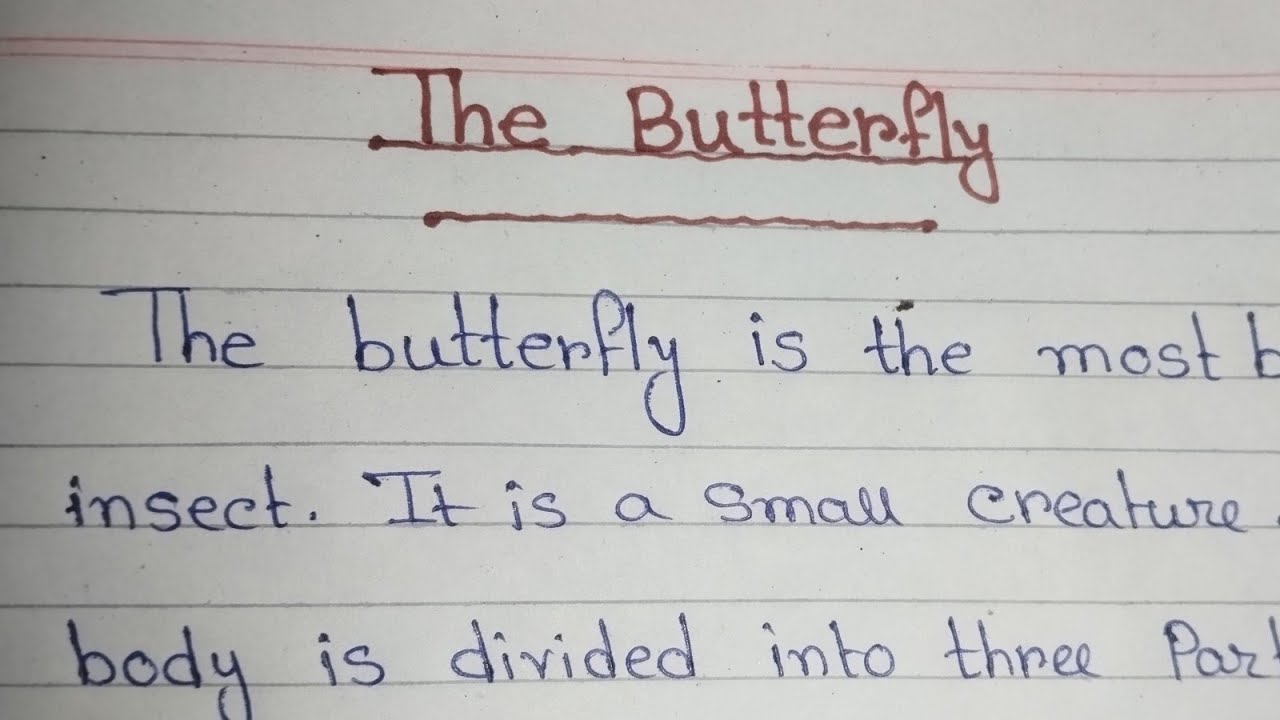 The Butterfly
The butterfly is the most b
insect. It is a small creature.
body is divided into three Part